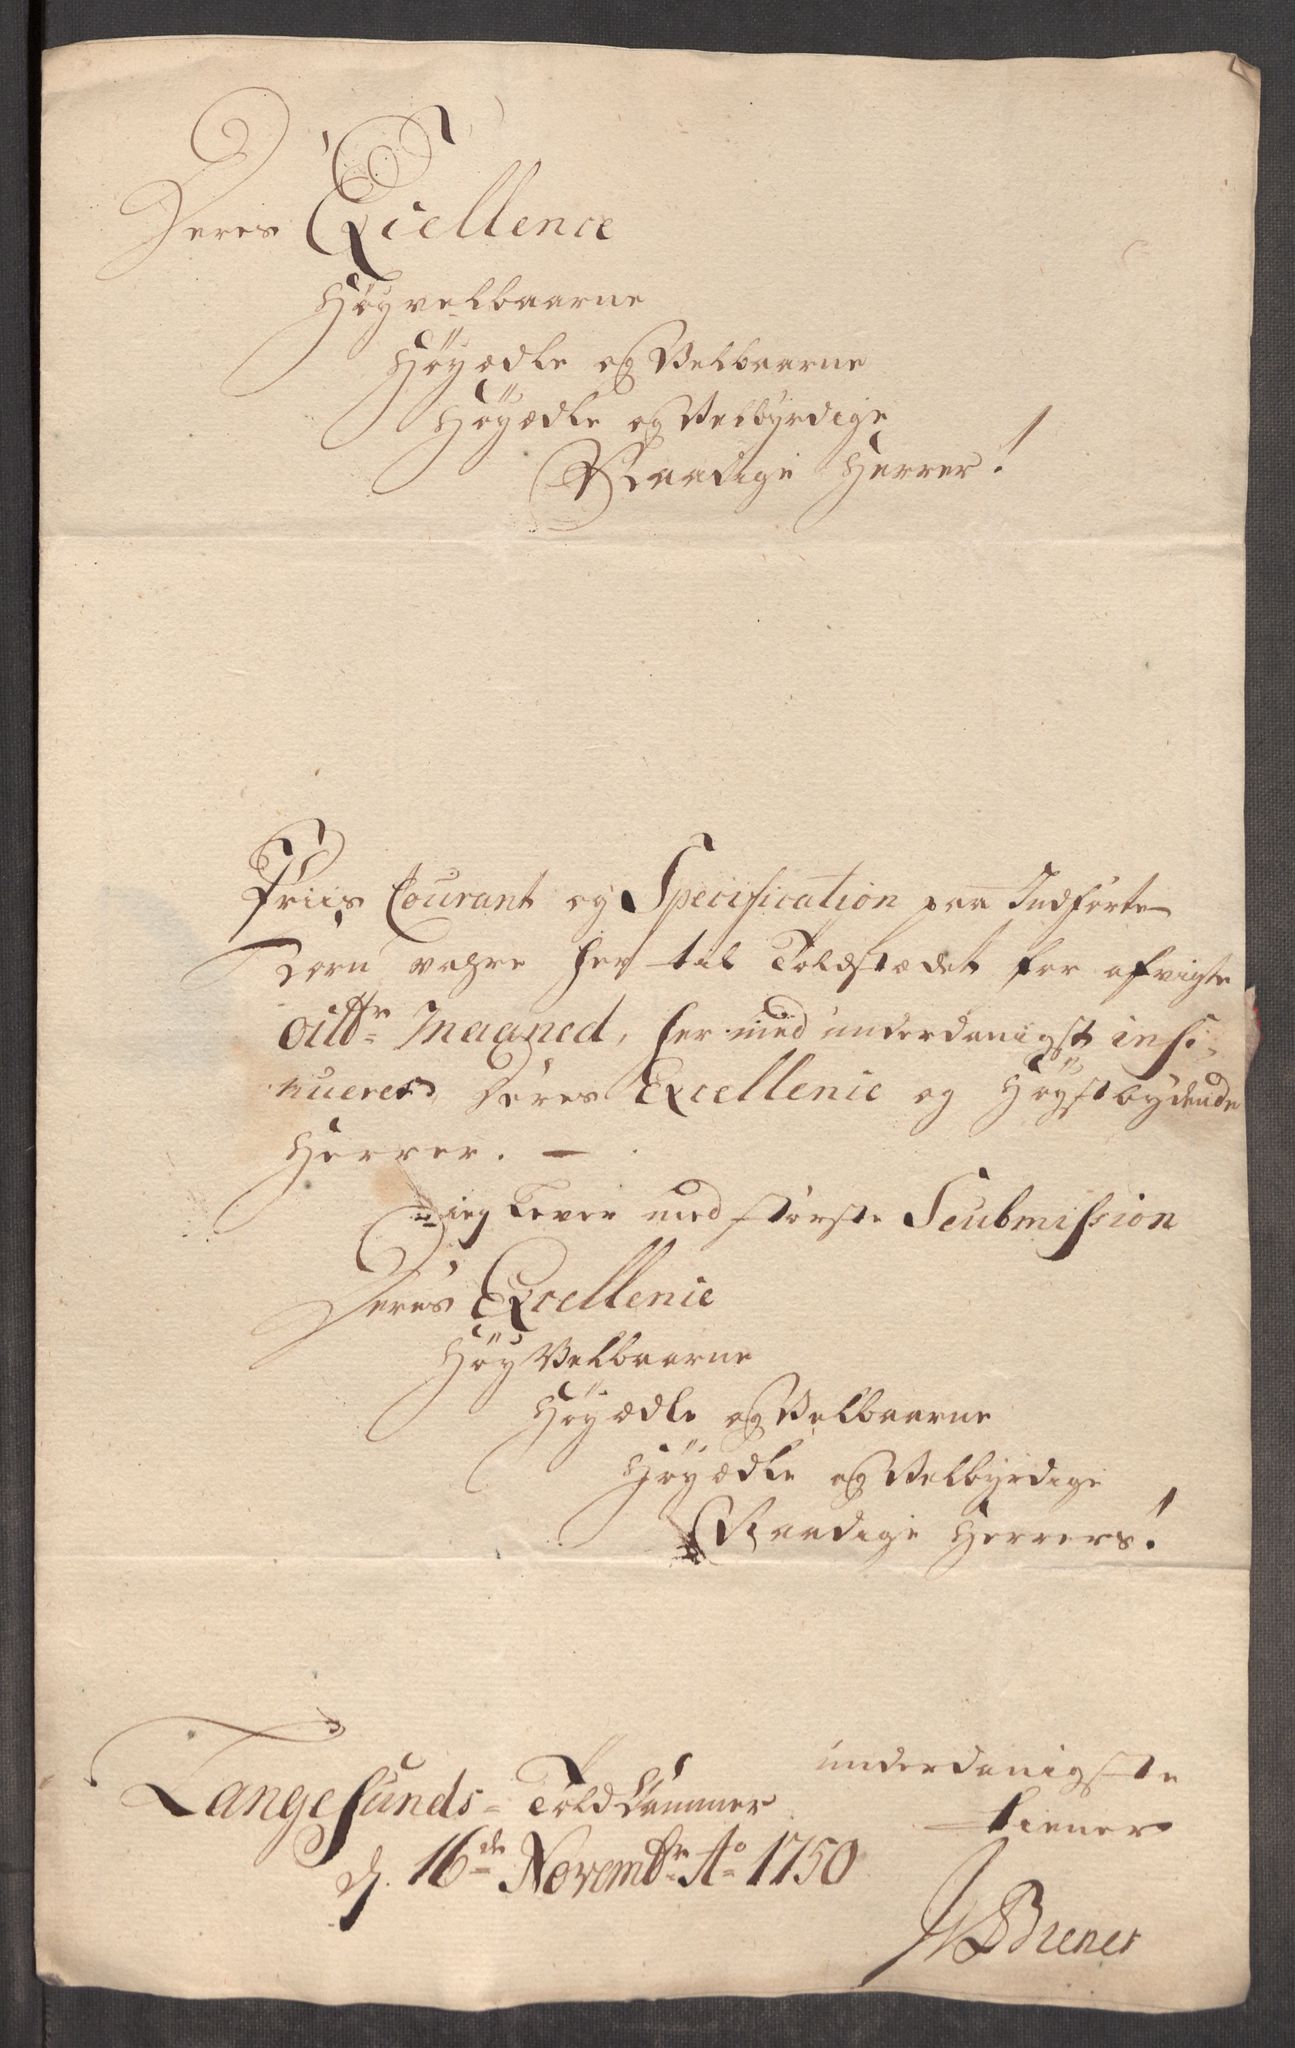 Deres Excellence
Høyvelbaarne
Høyædle og Velbaarne
Høyædle og Velbyrdige
Naadige Herrer!
Priis Courant og Specification paa Indførte
Korn vahre her til Toldstædet for afvigte
Octbr Maaned, her med underdanigst insi-
nueres Deres Excellence og Høystbydende
Herrer. —
ieg lever med største Scubmission
Deres Excellence
HøyVelbaarne
Høyædle og Velbaarne
Høyædle og Velbyrdige
Naadige Herrers!
underdanigste
Langesunds- Told Cammer
tiener
d. 16de Novembr Ao 1750